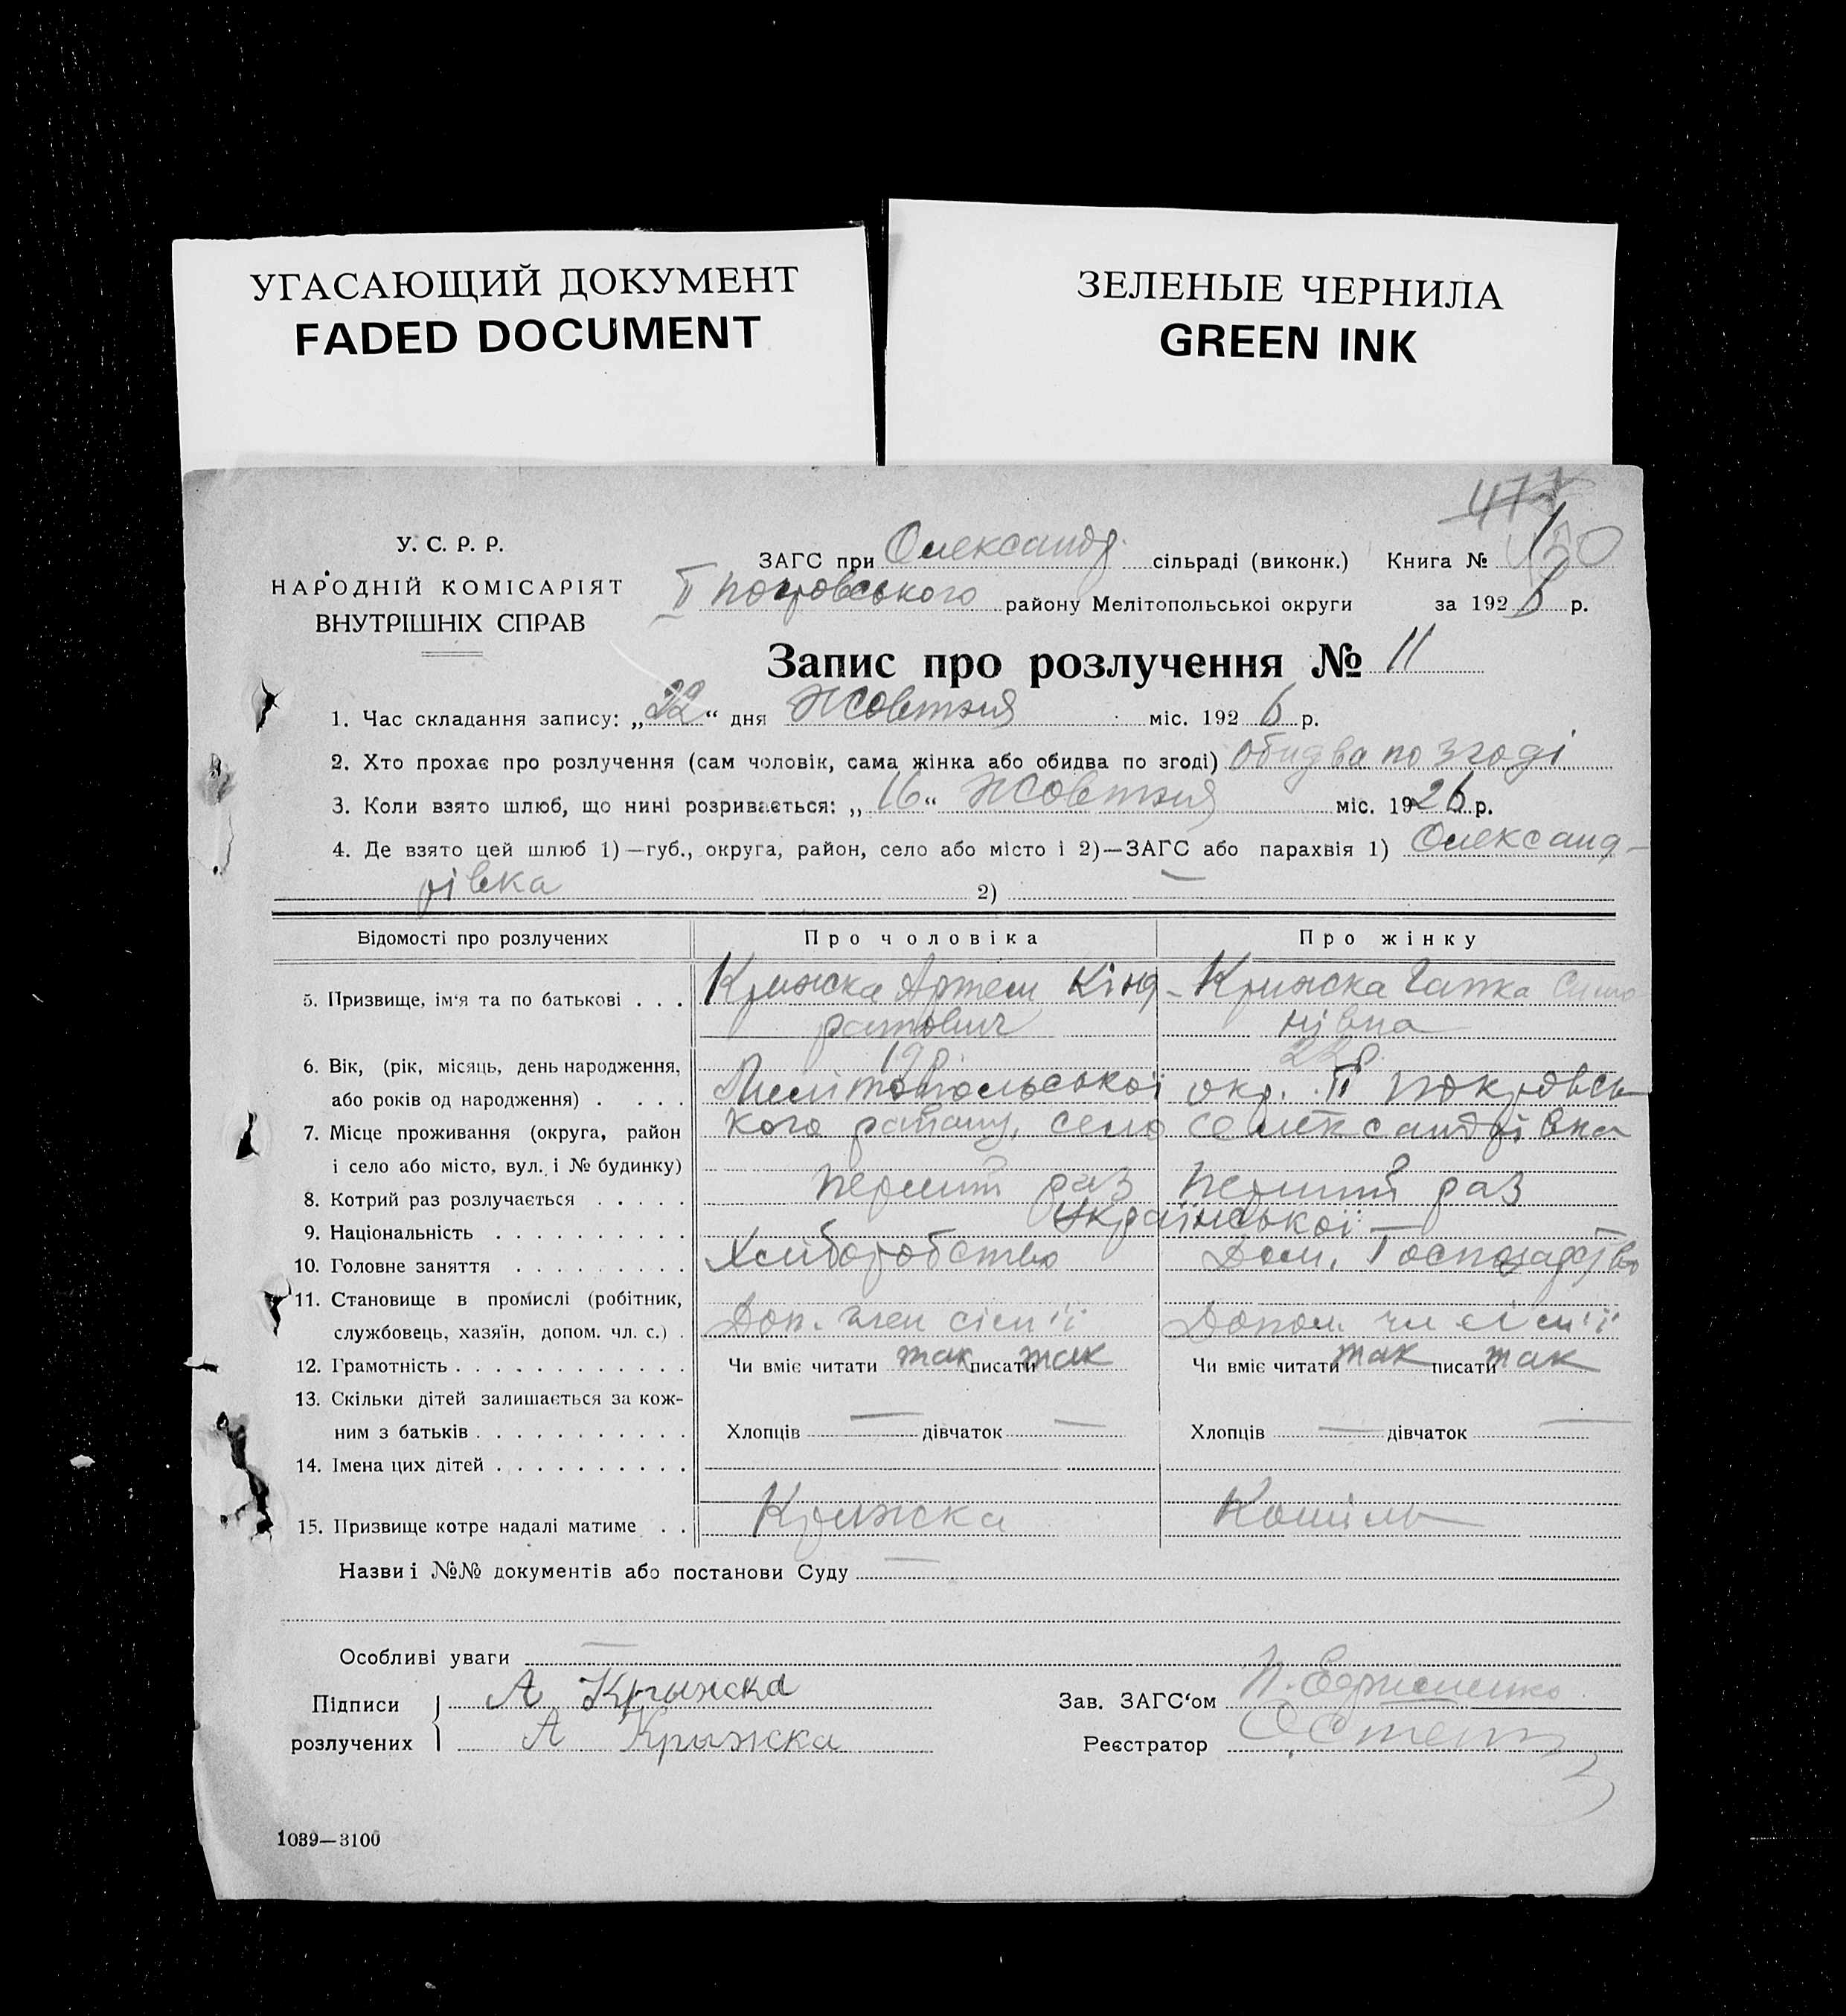 УГАСАЮЩИЙ ДОКУМЕНТ
FADED DOCUMENT
ЗЕЛЕНЫЕ ЧЕРНИЛА
GREEN INK
У. С. Р. Р.
НАРОДНІЙ КОМІСАРІЯТ
ВНУТРІШНІХ СПРАВ
ЗАГС при Олександр. сільраді (виконк.) Книга №
II Покровського району Мелітопольської округи за 1926 р.
Запис про розлучення № 11
1. Час складання запису: „22“ дня Жовтня міс. 1926 р.
2. Хто прохає про розлучення (сам чоловік, сама жінка або обидва по згоді) обидва по згоді
3. Коли взято шлюб, що нині розривається: „16“ Жовтня міс. 1926 р.
4. Де взято цей шлюб 1)—губ., округа, район, село або місто і 2)—ЗАГС або парахвія 1) Олександ-
рівка 2) —
Відомості про розлучених Про чоловіка Про жінку
5. Призвище, ім'я та по батькові . . . Крижска Артем Кінд- Крижска Гапка
ратович
6. Вік, (рік, місяць, день народження, 19 р. 22 р.
або років од народження) . . . . Мелітопольської окр. II Покровсь
7. Місце проживання (округа, район кого району, село Олександрівка
і село або місто, вул. і № будинку)
8. Котрий раз розлучається . . . . . перший раз перший раз
9. Національність . . . . . . . . . . Української —
10. Головне заняття . . . . . . . . . Хліборобство Дом. Господарство
11. Становище в промислі (робітник,
службовець, хазяїн, допом. чл. с.) . Доп. член сім'ї Допом чл сім'ї
12. Грамотність . . . . . . . . . . . . Чи вміє читати так писати так Чи вміє читати так писати так
13. Скільки дітей залишається за кож-
ним з батьків . . . . . . . . . . . Хлопців — дівчаток — Хлопців — дівчаток —
14. Імена цих дітей . . . . . . . . . .
15. Призвище котре надалі матиме . . Крижска Кошіль
Назви і №№ документів або постанови Суду —
Особливі уваги —
Підписи А Крыжска Зав. ЗАГС'ом
розлучених А Крыжска Реєстратор
1039—3100